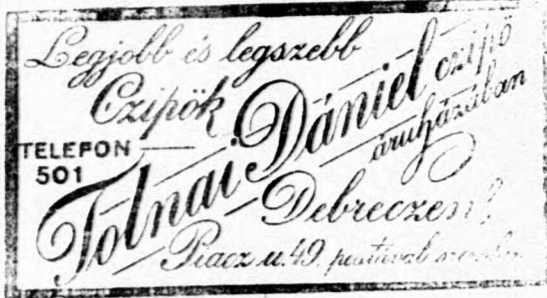 Legjobb és legszebb
Czipők
TELEFON
501
Tolnai Dániel czipő
áruházában
Debreczen
Piacz u. 49.